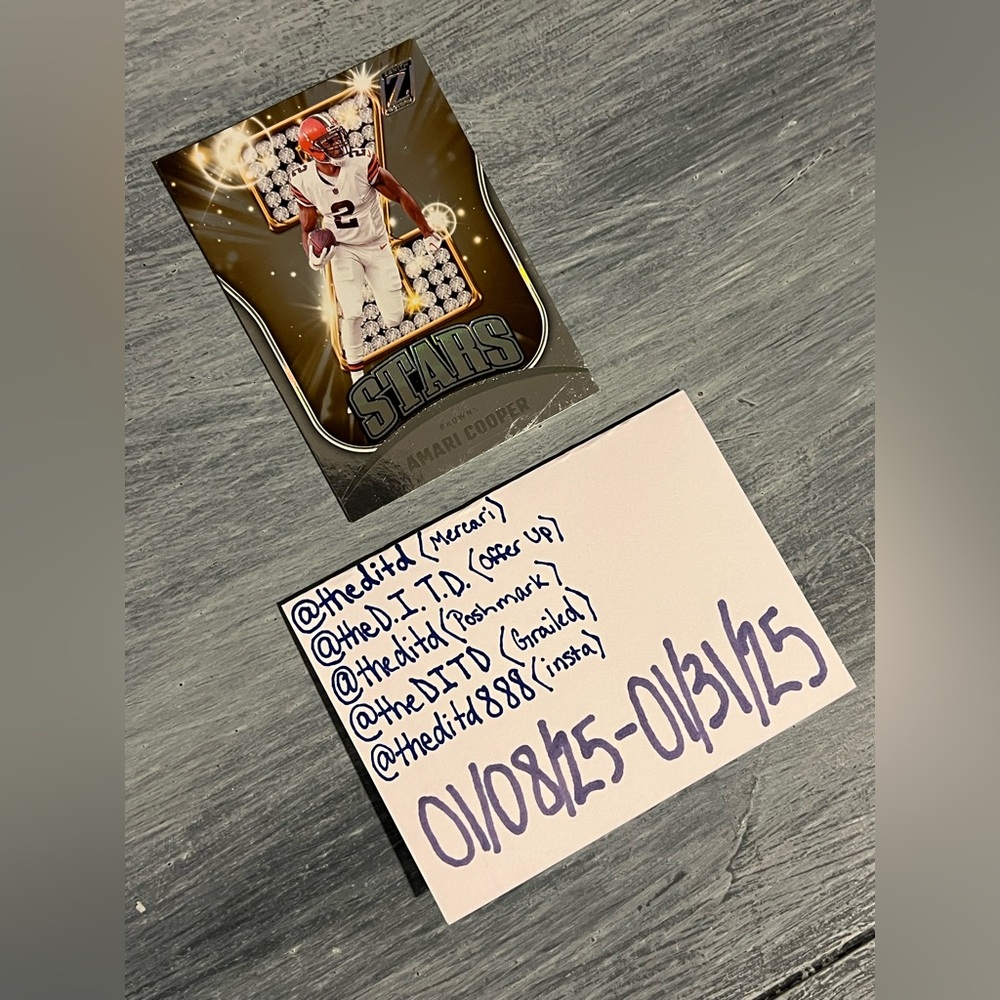 Z
2
2
2
STARS
BROWNS
AMARI COOPER
@theditd (Mercari)
@theD.I.T.D. (Offer Up)
@theditd (Poshmark)
@theDITD (Grailed)
@theditd888 (insta)
01/08/25-01/31/25